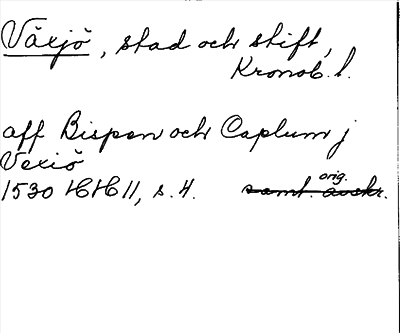 Växjö, stad och stift,
Kronob. l.
aff Bispen och Caplum j
Vexiö
orig.
1530 HH 11, s. 4. samt. avskr.